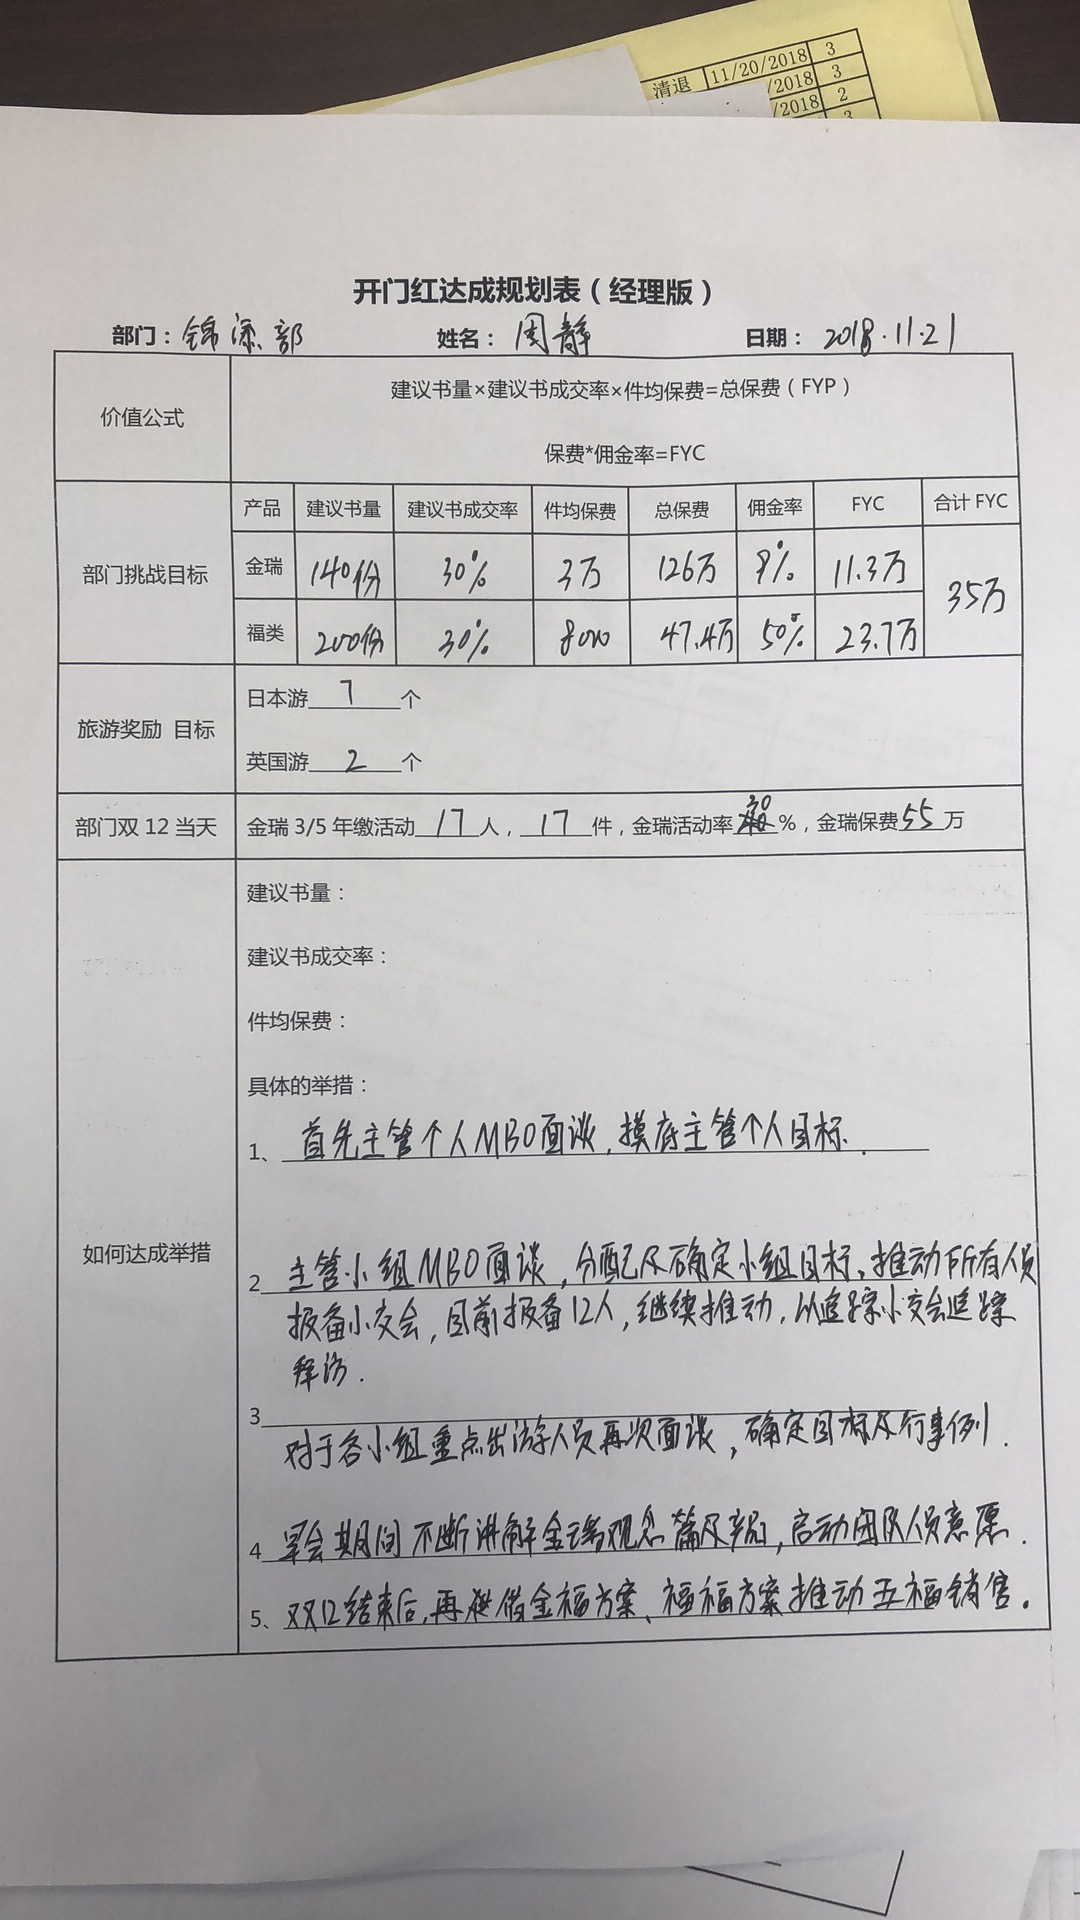 清退 11/20/2018 3
/2018 3
/2018 2
开门红达成规划表（经理版）
部门：锦添部 姓名：周静 日期：2018.11.21
价值公式
建议书量×建议书成交率×件均保费=总保费（FYP）
保费*佣金率=FYC
部门挑战目标
产品 建议书量 建议书成交率 件均保费 总保费 佣金率 FYC 合计 FYC
金瑞 140份 30% 3万 126万 9% 11.3万 35万
福类 200份 30% 8000 47.4万 50% 23.7万
旅游奖励 目标
日本游 7 个
英国游 2 个
部门双 12 当天 金瑞 3/5 年缴活动 17 人，17 件，金瑞活动率 30 %，金瑞保费 55 万
如何达成举措
建议书量：
建议书成交率：
件均保费：
具体的举措：
1、首先主管个人MBO面谈，摸底主管个人目标.
2 主管小组MBO面谈，分配及确定小组目标。推动所有人员
报备小交会，目前报备12人，继续推动，以追踪小交会追踪
拜访.
3
对于各小组重点出游人员再次面谈，确定目标及行事例.
4 早会期间不断讲解金瑞观念篇及产品，启动团队人员意愿.
5、双12结束后，再次借金福方案、福福方案推动五福销售。